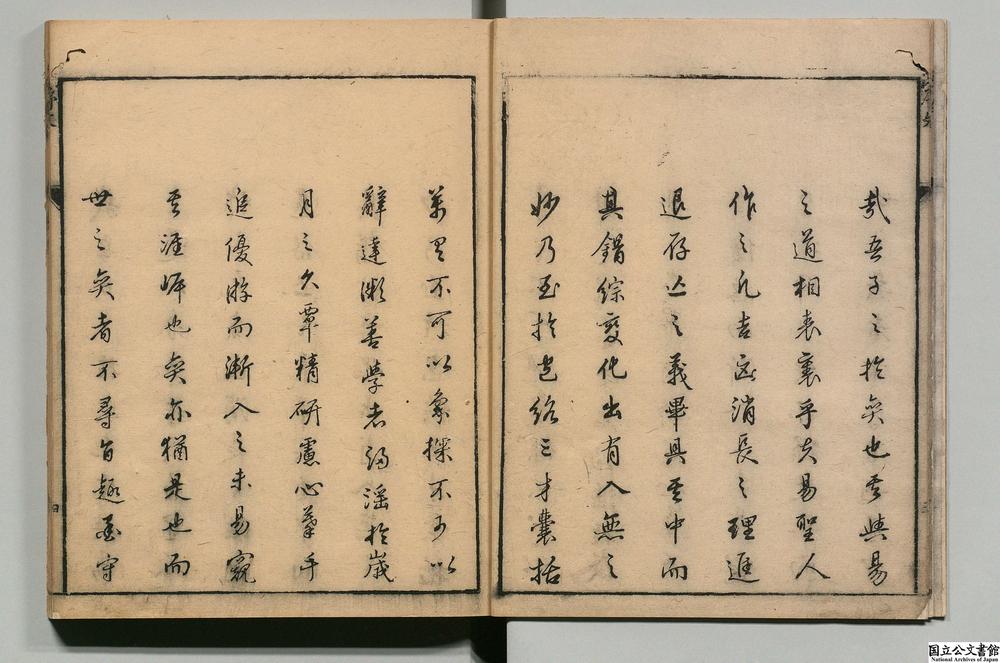 哉吾子之於奕也其與易
之道相表裏乎夫易聖人
作之凡吉凶消長之理進
退存亡之義畢具其中而
其錯綜變化出有入無之
妙乃至於包絡三才囊括
萬界不可以象探不可以
辭達漸善學者沉滛於歲
月之久覃精研慮心摹手
追優游而漸入之未易窺
其涯涘也奕亦猶是也而
世之奕者不尋旨趣墨守
四
国立公文書館
National Archives of Japan